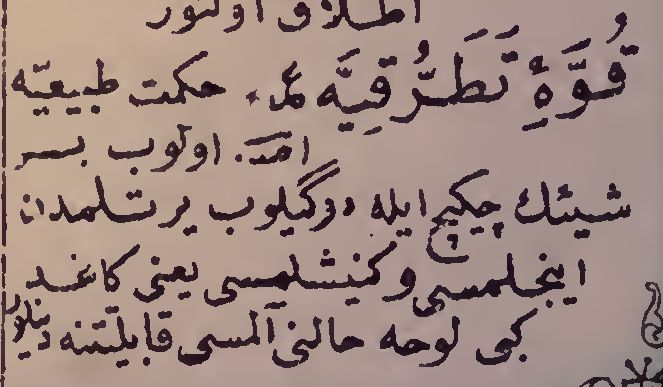 اطلاق اولنور
قُوَّةِٔ تَطَرُّقِیَّه عم. حکمت طبیعیّه
اولوب بر
شیئك چکیج ایله دوگیلوب یرتلمدان
اینجلمسی و کنیشلمسی یعنی کاغد
کبی لوحه حالنی آلمسی قابلیّتنه دینلور